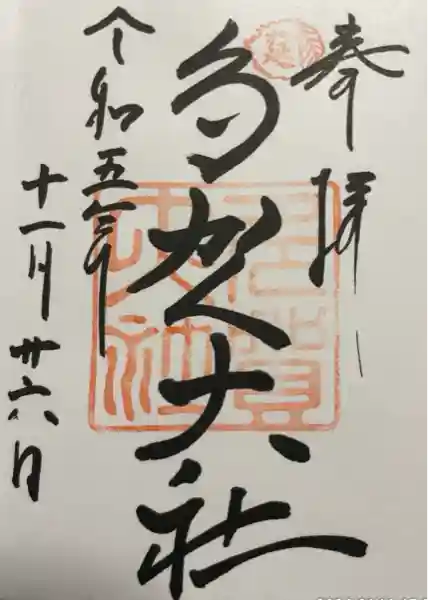 奉拝
多賀大社
令和五年
十一月廿六日
多賀
大社